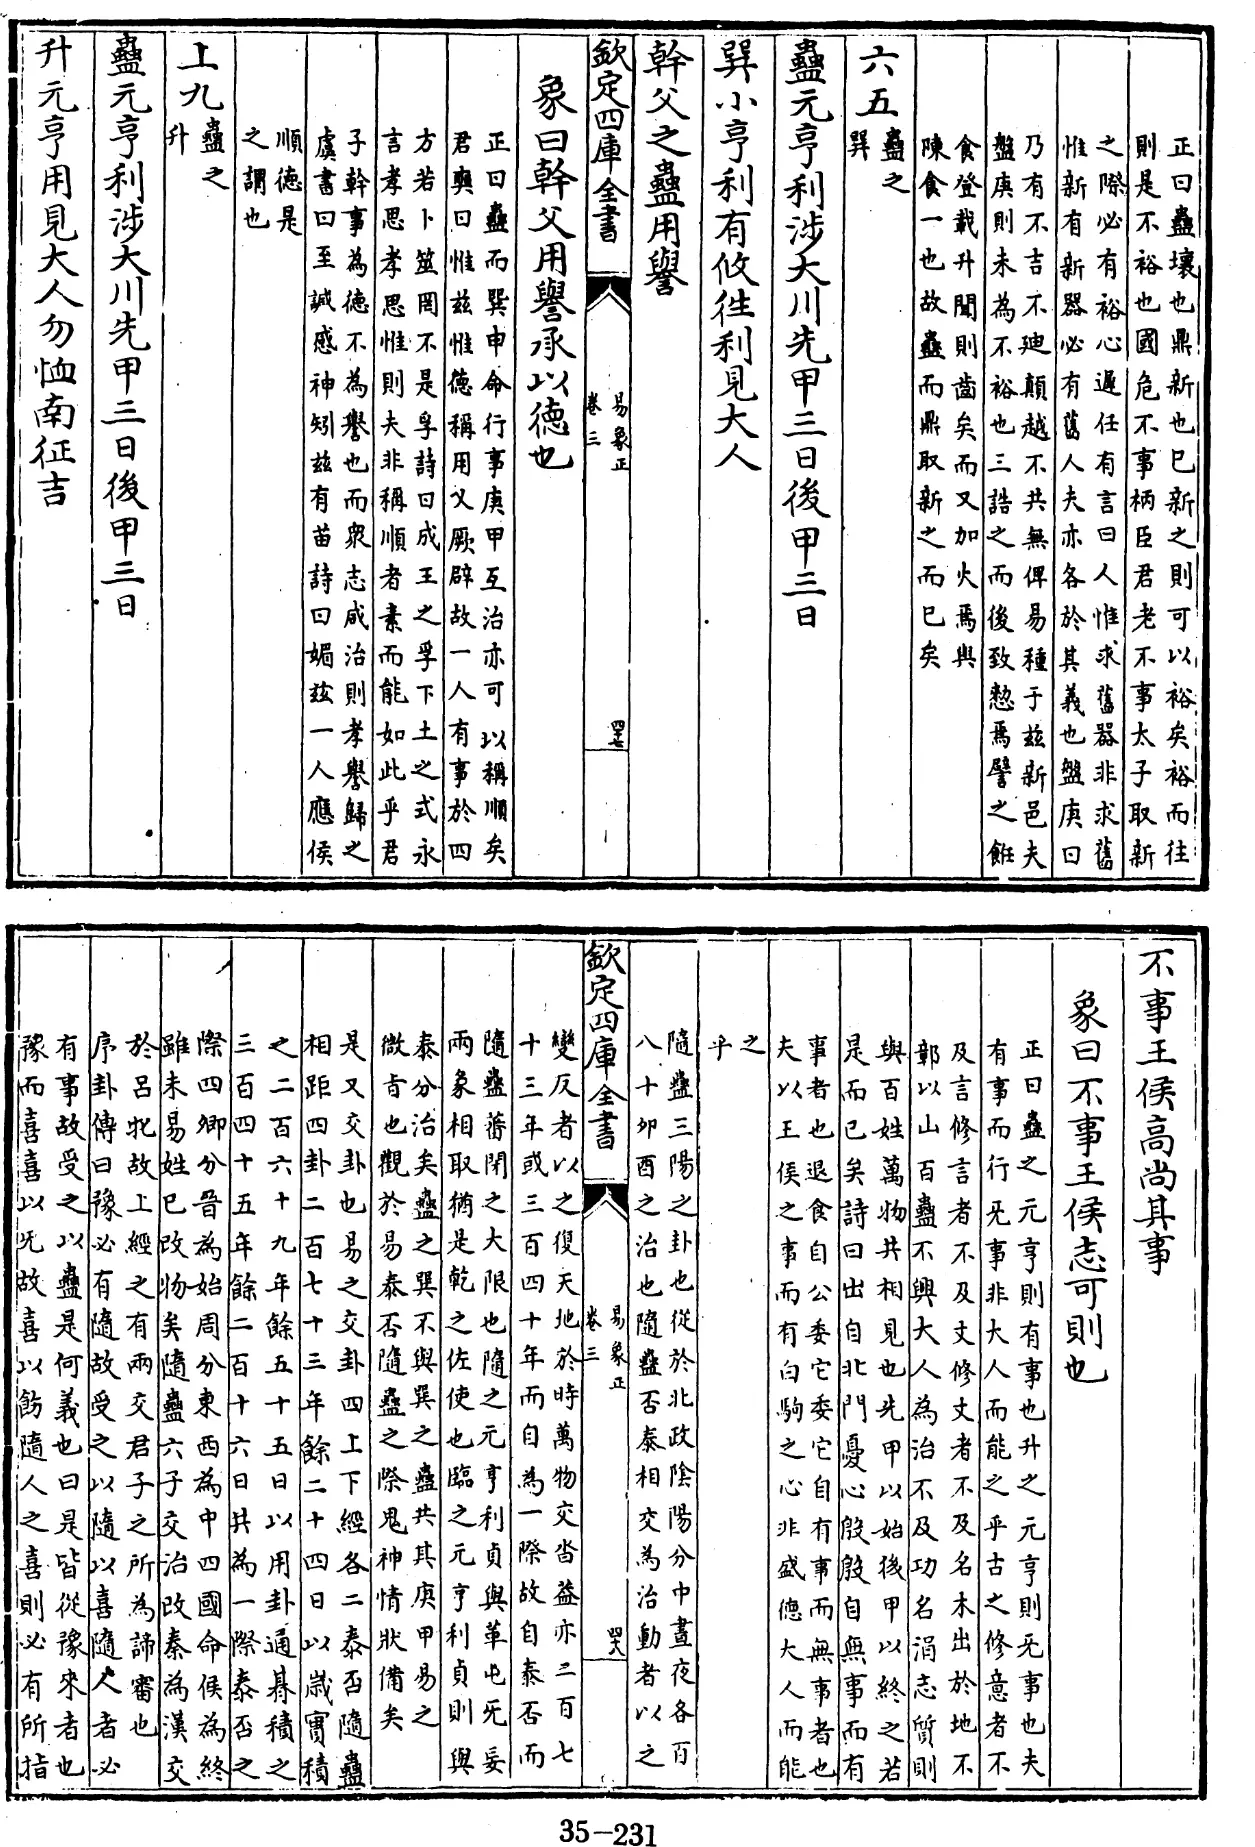 正曰蠱壞也鼎新也已新之則可以裕矣裕而往
則是不裕也國危不事柄臣君老不事太子取新
之際必有裕心遲任有言曰人惟求舊器非求舊
惟新有新器必有舊人夫亦各於其義也盤庚曰
乃有不吉不迪顛越不共無俾易種于兹新邑夫
盤庚則未為不裕也三誥之而後致愸焉譬之飪
食登載升聞則齒矣而又加火焉與
陳食一也故蠱而鼎取新之而已矣
六五蠱之
巽
蠱元亨利涉大川先甲三日後甲三日
巽小亨利有攸徃利見大人
幹父之蠱用譽
欽定四庫全書
易象正
卷三
四十七
象曰幹父用譽承以德也
正曰蠱而巽申命行事庚甲互治亦可以稱順矣
君奭曰惟兹惟德稱用乂厥辟故一人有事於四
方若卜筮罔不是孚詩曰成王之孚下土之式永
言孝思孝思惟則夫非稱順者素而能如此乎君
子幹事為德不為譽也而衆志咸治則孝譽歸之
虞書曰至諴感神矧兹有苗詩曰媚兹一人應侯
順德是
之謂也
上九蠱之
升
蠱元亨利涉大川先甲三日後甲三日
升元亨用見大人勿恤南征吉
不事王侯高尚其事
象曰不事王侯志可則也
正曰蠱之元亨則有事也升之元亨則旡事也夫
有事而行旡事非大人而能之乎古之修意者不
及言修言者不及丈修丈者不及名木出於地不
鄣以山百蠱不興大人為治不及功名涓志質則
與百姓萬物共相見也先甲以始後甲以終之若
是而已矣詩曰出自北門憂心殷殷自無事而有
事者也退食自公委它委它自有事而無事者也
夫以王侯之事而有白駒之心非盛德大人而能
之
乎
隨蠱三陽之卦也從於北政陰陽分中晝夜各百
八十卯酉之治也隨蠱否泰相交為治動者以之
欽定四庫全書
易象正
卷三
四十八
變反者以之復天地於時萬物交沓益亦二百七
十三年或三百四十年而自為一際故自泰否而
隨蠱蕃閉之大限也隨之元亨利貞與革屯旡妄
兩象相取猶是乾之佐使也臨之元亨利貞則與
泰分治矣蠱之巽不與巽之蠱共其庚甲易之
微㫖也觀於易泰否隨蠱之際鬼神情狀備矣
是又交卦也易之交卦四上下經各二泰否隨蠱
相距四卦二百七十三年餘二十四日以歲實積
之二百六十九年餘五十五日以用卦通朞積之
三百四十五年餘二百十六日共為一際泰否之
際四卿分晉為始周分東西為中四國命侯為終
雖未易姓已改物矣隨蠱六子交治改秦為漢交
於呂牝故上經之有兩交君子之所為諦審也
序卦傳曰豫必有隨故受之以隨以喜隨人者必
有事故受之以蠱是何義也曰是皆從豫來者也
豫而喜喜以旡故喜以飭隨人之喜則必有所指
35-231